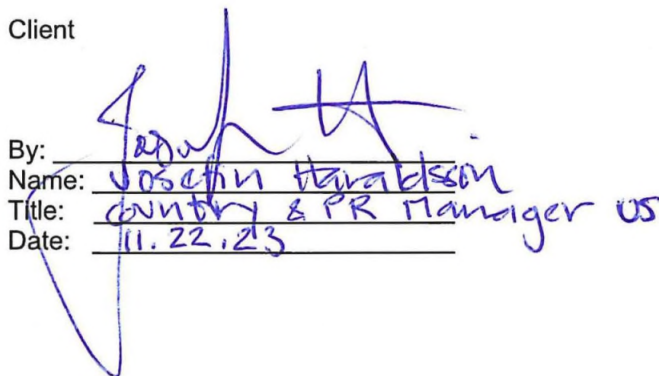 Client
By:
Name: Josefin Haraldsson
Title: Country & PR Manager US
Date: 11.22.23